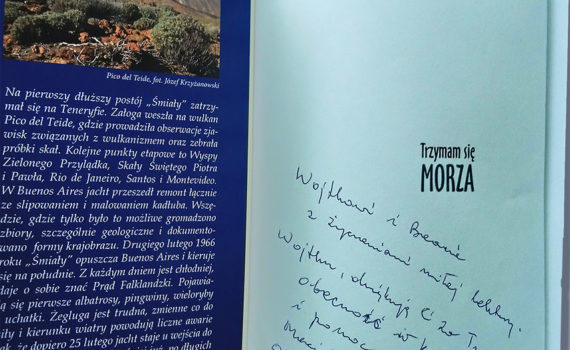 Pico del Teide, fot. Józef Krzyżanowski
Na pierwszy dłuższy postój „Śmiały” zatrzy-
mał się na Teneryfie. Załoga weszła na wulkan
Pico del Teide, gdzie prowadziła obserwacje zja-
wisk związanych z wulkanizmem oraz zebrała
próbki skał. Kolejne punkty etapowe to Wyspy
Zielonego Przylądka, Skały Świętego Piotra
i Pawła, Rio de Janeiro, Santos i Montevideo.
W Buenos Aires jacht przeszedł remont łącznie
ze slipowaniem i malowaniem kadłuba. Wszę-
dzie, gdzie tylko było to możliwe gromadzono
zbiory, szczególnie geologiczne i dokumento-
wano formy krajobrazu. Drugiego lutego 1966
roku „Śmiały” opuszcza Buenos Aires i kieruje
się na południe. Z każdym dniem jest chłodniej,
daje o sobie znać Prąd Falklandzki. Pojawia-
ją się pierwsze albatrosy, pingwiny, wieloryby
uchatki. Żegluga jest trudna, zmienne co do
siły i kierunku wiatry powodują liczne awarie
tak, że dopiero 25 lutego jacht staje u wejścia do
Trzymam się
MORZA
Wojtkowi i Beacie
z życzeniami miłej lektury.
Wojtku, dziękuję Ci za
obecność w
i pomoc